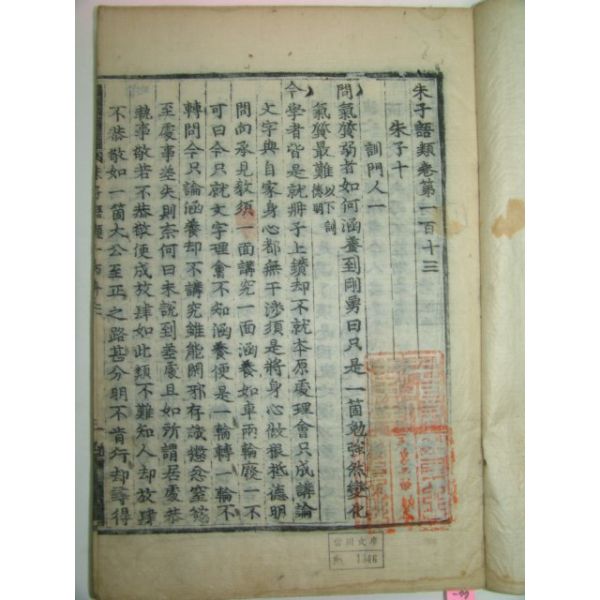 朱子語類卷第一百十三
朱子十
訓門人一
問氣質弱者如何涵養到剛勇曰只是一箇勉強然變化
氣質最難以下訓德明
今學者皆是就冊子上鑽却不就本原處理會只成講論
文字與自家身心都無干涉須是將身心做根柢德明
問向承見教須一面講究一面涵養如車兩輪廢一不
可曰今只就文字理會不知涵養便是一輪轉一輪不
轉問今只論涵養却不講究雖能閑邪存誠懲忿窒慾
至處事差失則奈何曰未說到差處且如所謂居處恭
執事敬若不恭敬便成放肆如此類不難知人却放肆
不恭敬如一箇大公至正之路甚分明不肯行却尋得
朱子語類 百十三
一
No. 1346